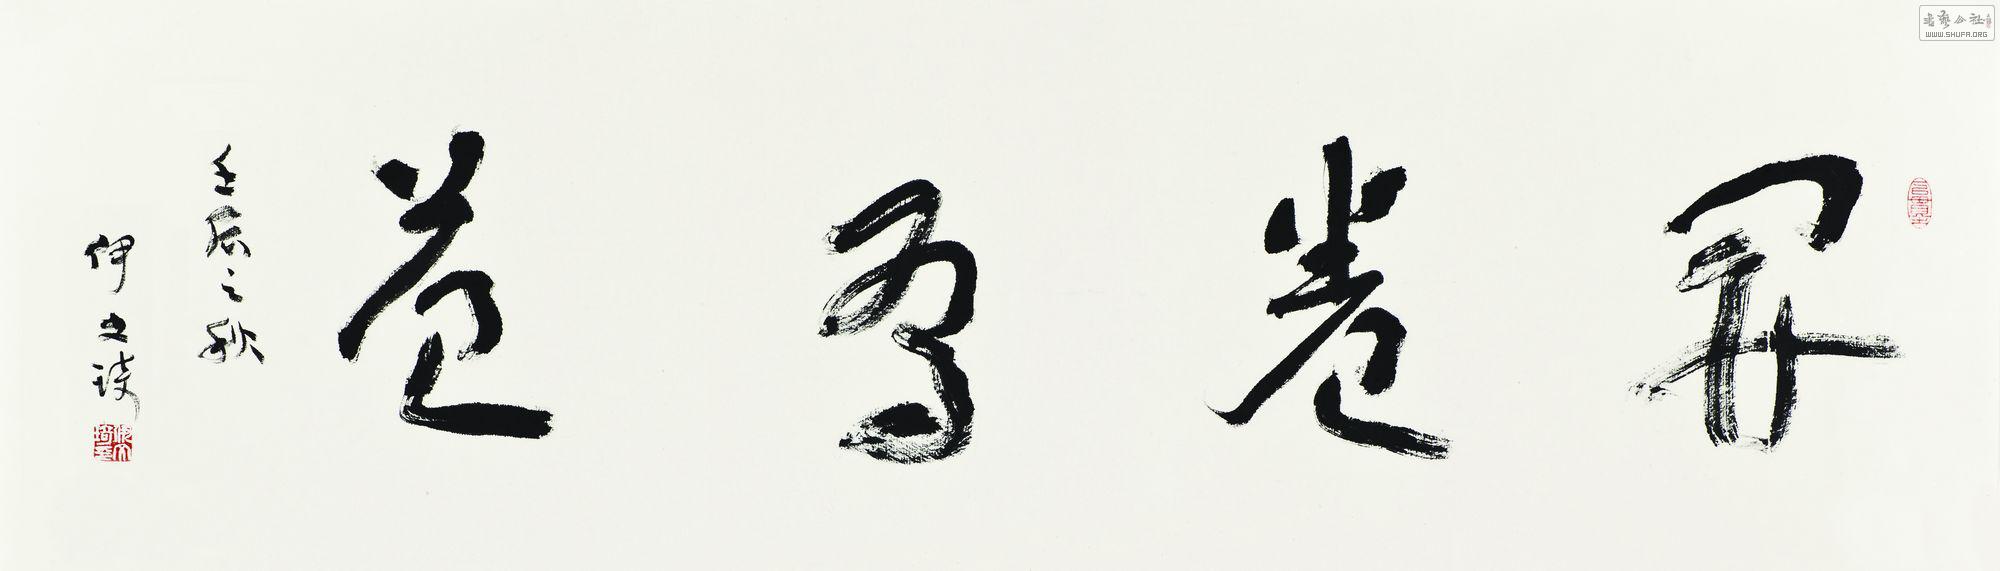 開卷有益
壬辰之秋
伊文琦
書藝公社
WWW.SHUFA.ORG